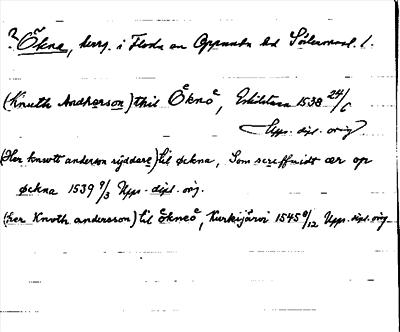 ? Ökna, herrg. i Floda sn Oppunda hd Södermanl. l.
(Knuth Andhersson) thil Øknø, Eskilstuna 1538 24/6
Upps. dipl. orig
(Her knwtt anderson riddere) til øckna, Som screffuidt ær op
øckna 1539 9/3 Upps. dipl. orig.
(her Knvth andersson) til økneø, Kurkijärvi 1545 6/12 Upps. dipl. orig